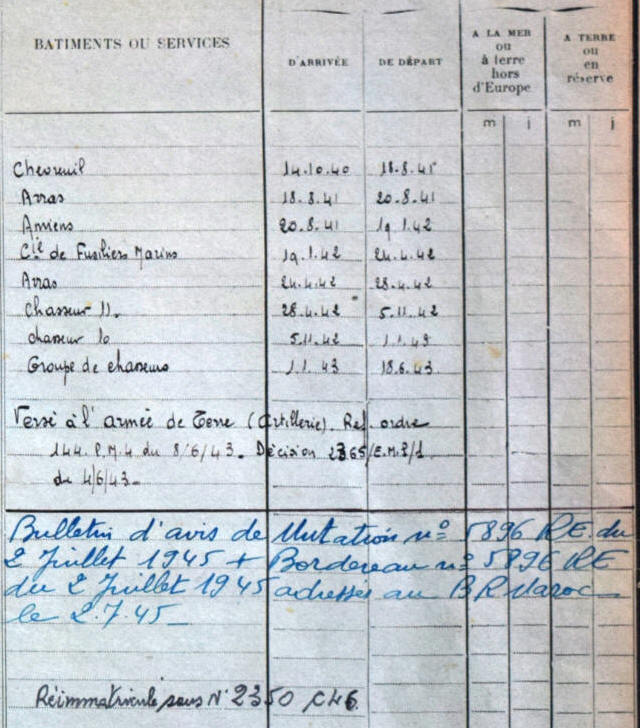 BATIMENTS OU SERVICES
D'ARRIVÉE
DE DÉPART
A LA MER
ou
à terre
hors
d'Europe
A TERRE
ou
en
réserve
m j m j
Chevreuil 14.10.40 18.8.41
Arras 18.8.41 20.8.41
Amiens 20.8.41 19.1.42
Cie de Fusiliers Marins 19.1.42 24.4.42
Arras 24.4.42 28.4.42
Chasseur 11. 28.4.42 5.11.42
chasseur 10 5.11.42 1.1.43
Groupe de chasseurs 1.1.43 18.6.43
Versé à l'armée de Terre (Artillerie). Ref. ordre
144. P.M.4 du 8/6/43. Décision 2365/E.M.P/1
du 4/6/43.
Bulletin d'avis de Mutation nº 5896 RE. du
2 Juillet 1945 + Bordereau nº 5896 RE
du 2 Juillet 1945 adressés au BR Maroc
le 2.7.45
Réimmatriculé sous N° 2350 C46